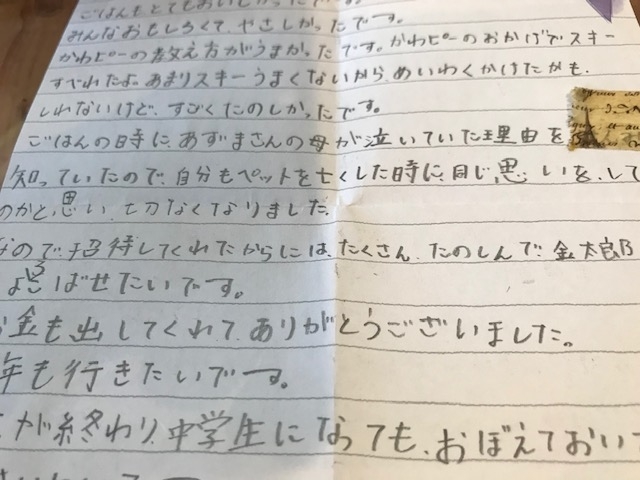 ごはんもとてもおいしかったです。
みんなおもしろくて、やさしかったです。
かわピーの教え方がうまかったです。かわピーのおかげでスキー
すべれたよ。あまりスキーうまくないから、めいわくかけたかも、
しれないけど、すごくたのしかったです。
ごはんの時に、あずまさんの母が泣いていた理由を
知っていたので、自分もペットを亡くした時に、同じ思いをして
のかと思い、切なくなりました。
なので、招待してくれたからには、たくさん、たのしんで、金太郎
よろこばせたいです。
お金も出してくれて、ありがとうございました。
年も行きたいです。
が終わり、中学生になっても、おぼえておいて